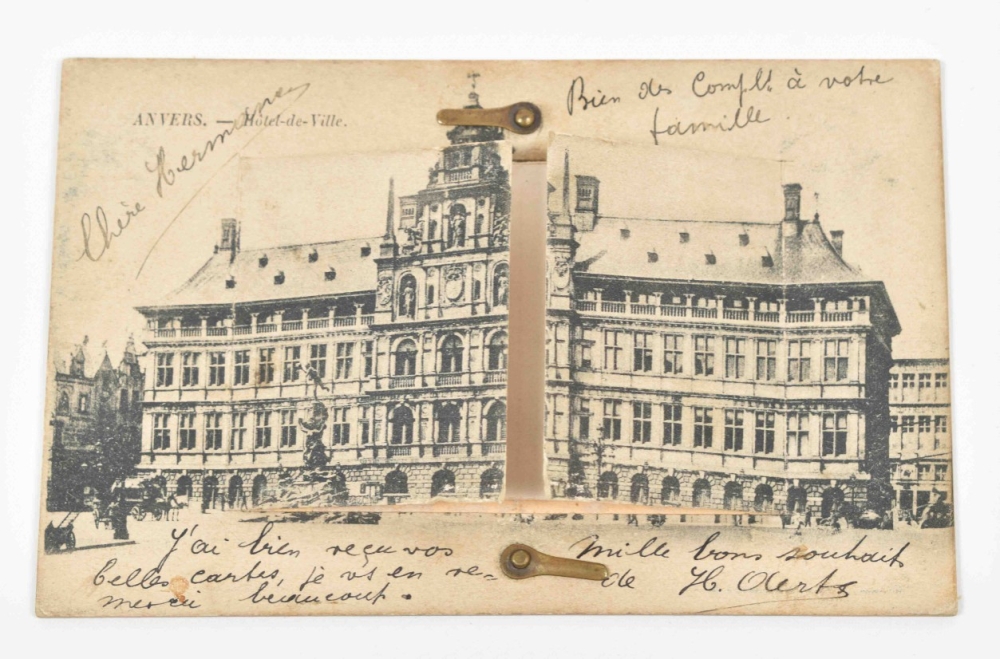 ANVERS. — Hôtel-de-Ville.
Chère Hermance
Bien des Complts à votre
famille.
J'ai bien reçu vos
belles cartes, je vs en re-
mercie beaucoup.
Mille bons souhaits
de H. Aerts